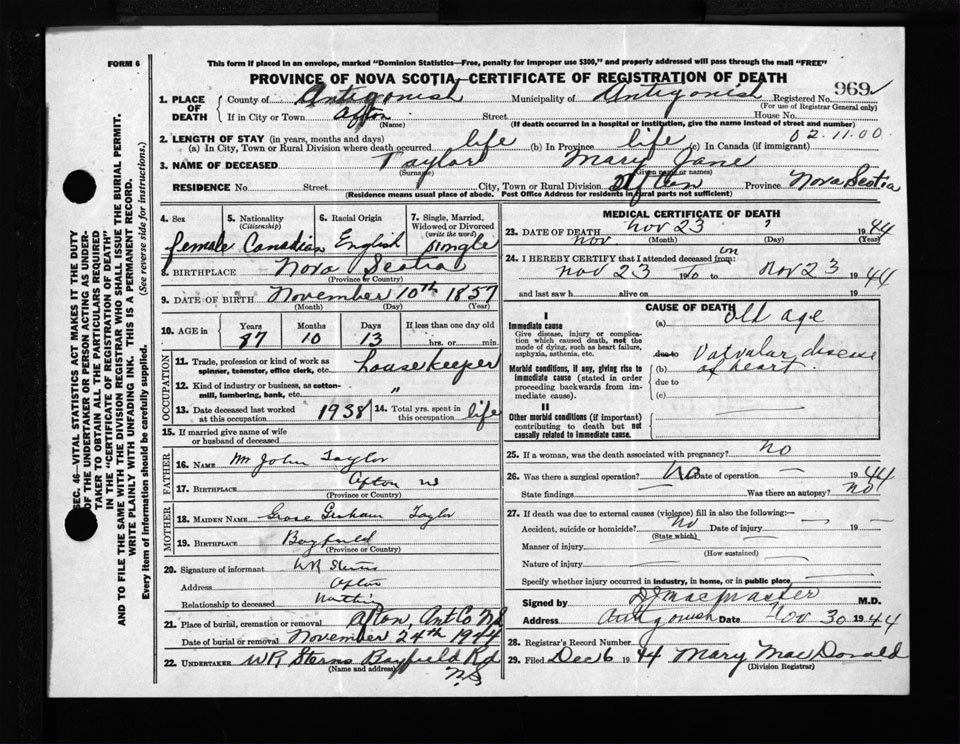 FORM 6
This form if placed in an envelope, marked "Dominion Statistics—Free, penalty for improper use $300," and properly addressed will pass through the mail "FREE"
PROVINCE OF NOVA SCOTIA—CERTIFICATE OF REGISTRATION OF DEATH
969
1. PLACE OF DEATH County of Antigonish Municipality of Antigonish Registered No.
(For use of Registrar General only)
If in City or Town Afton Street House No.
(Name) (If death occurred in a hospital or institution, give the name instead of street and number)
02.11.00
2. LENGTH OF STAY (in years, months and days)
(a) In City, Town or Rural Division where death occurred life (b) In Province life (c) In Canada (if immigrant)
3. NAME OF DECEASED Taylor Mary Jane
(Surname) (Given name or names)
RESIDENCE No. Street City, Town or Rural Division Afton Province Nova Scotia
(Residence means usual place of abode. Post Office Address for residents in rural parts not sufficient)
4. Sex female
5. Nationality (Citizenship) Canadian
6. Racial Origin English
7. Single, Married, Widowed or Divorced (write the word) single
8. BIRTHPLACE Nova Scotia
(Province or Country)
9. DATE OF BIRTH November 10th 1857
(Month) (Day) (Year)
10. AGE in Years 87 Months 10 Days 13 If less than one day old hrs. or min.
OCCUPATION
11. Trade, profession or kind of work as spinner, teamster, office clerk, etc. housekeeper
12. Kind of industry or business, as cotton-mill, lumbering, bank, etc. "
13. Date deceased last worked at this occupation 1938
14. Total yrs. spent in this occupation life
15. If married give name of wife or husband of deceased
FATHER
16. NAME Mr John Taylor
17. BIRTHPLACE Afton NS
(Province or Country)
MOTHER
18. MAIDEN NAME Taylor
19. BIRTHPLACE Bayfield
(Province or Country)
20. Signature of informant WR Sterns
Address Afton
Relationship to deceased
21. Place of burial, cremation or removal Afton, Ant Co NS
Date of burial or removal November 24th 1944
22. UNDERTAKER WR Sterns Bayfield Rd
(Name and address) NS
MEDICAL CERTIFICATE OF DEATH
23. DATE OF DEATH Nov 23 1944
nov (Month) (Day) (Year)
24. I HEREBY CERTIFY that I attended deceased from: on
Nov 23 19 to Nov 23 1944
and last saw h alive on 19
CAUSE OF DEATH
I
Immediate cause
Give disease, injury or complication which caused death, not the mode of dying, such as heart failure, asphyxia, asthenia, etc.
(a) old age
due to Valvular disease
Morbid conditions, if any, giving rise to immediate cause (stated in order proceeding backwards from immediate cause).
(b) of heart
due to
(c)
II
Other morbid conditions (if important) contributing to death but not causally related to immediate cause.
25. If a woman, was the death associated with pregnancy? no
26. Was there a surgical operation? No Date of operation — 1944
State findings Was there an autopsy? no
27. If death was due to external causes (violence) fill in also the following:—
Accident, suicide or homicide? no Date of injury — 19 —
(State which)
Manner of injury
(How sustained)
Nature of injury
Specify whether injury occurred in industry, in home, or in public place,
Signed by DJ MacMaster M.D.
Address Antigonish Date Nov 30 1944
28. Registrar's Record Number
29. Filed Dec 6 1944 Mary MacDonald
(Division Registrar)
SEC. 46—VITAL STATISTICS ACT MAKES IT THE DUTY
OF THE UNDERTAKER OR PERSON ACTING AS UNDER-
TAKER TO OBTAIN ALL THE PARTICULARS REQUIRED
IN THE "CERTIFICATE OF REGISTRATION OF DEATH"
AND TO FILE THE SAME WITH THE DIVISION REGISTRAR WHO SHALL ISSUE THE BURIAL PERMIT.
WRITE PLAINLY WITH UNFADING INK. THIS IS A PERMANENT RECORD.
Every item of information should be carefully supplied. (See reverse side for instructions.)